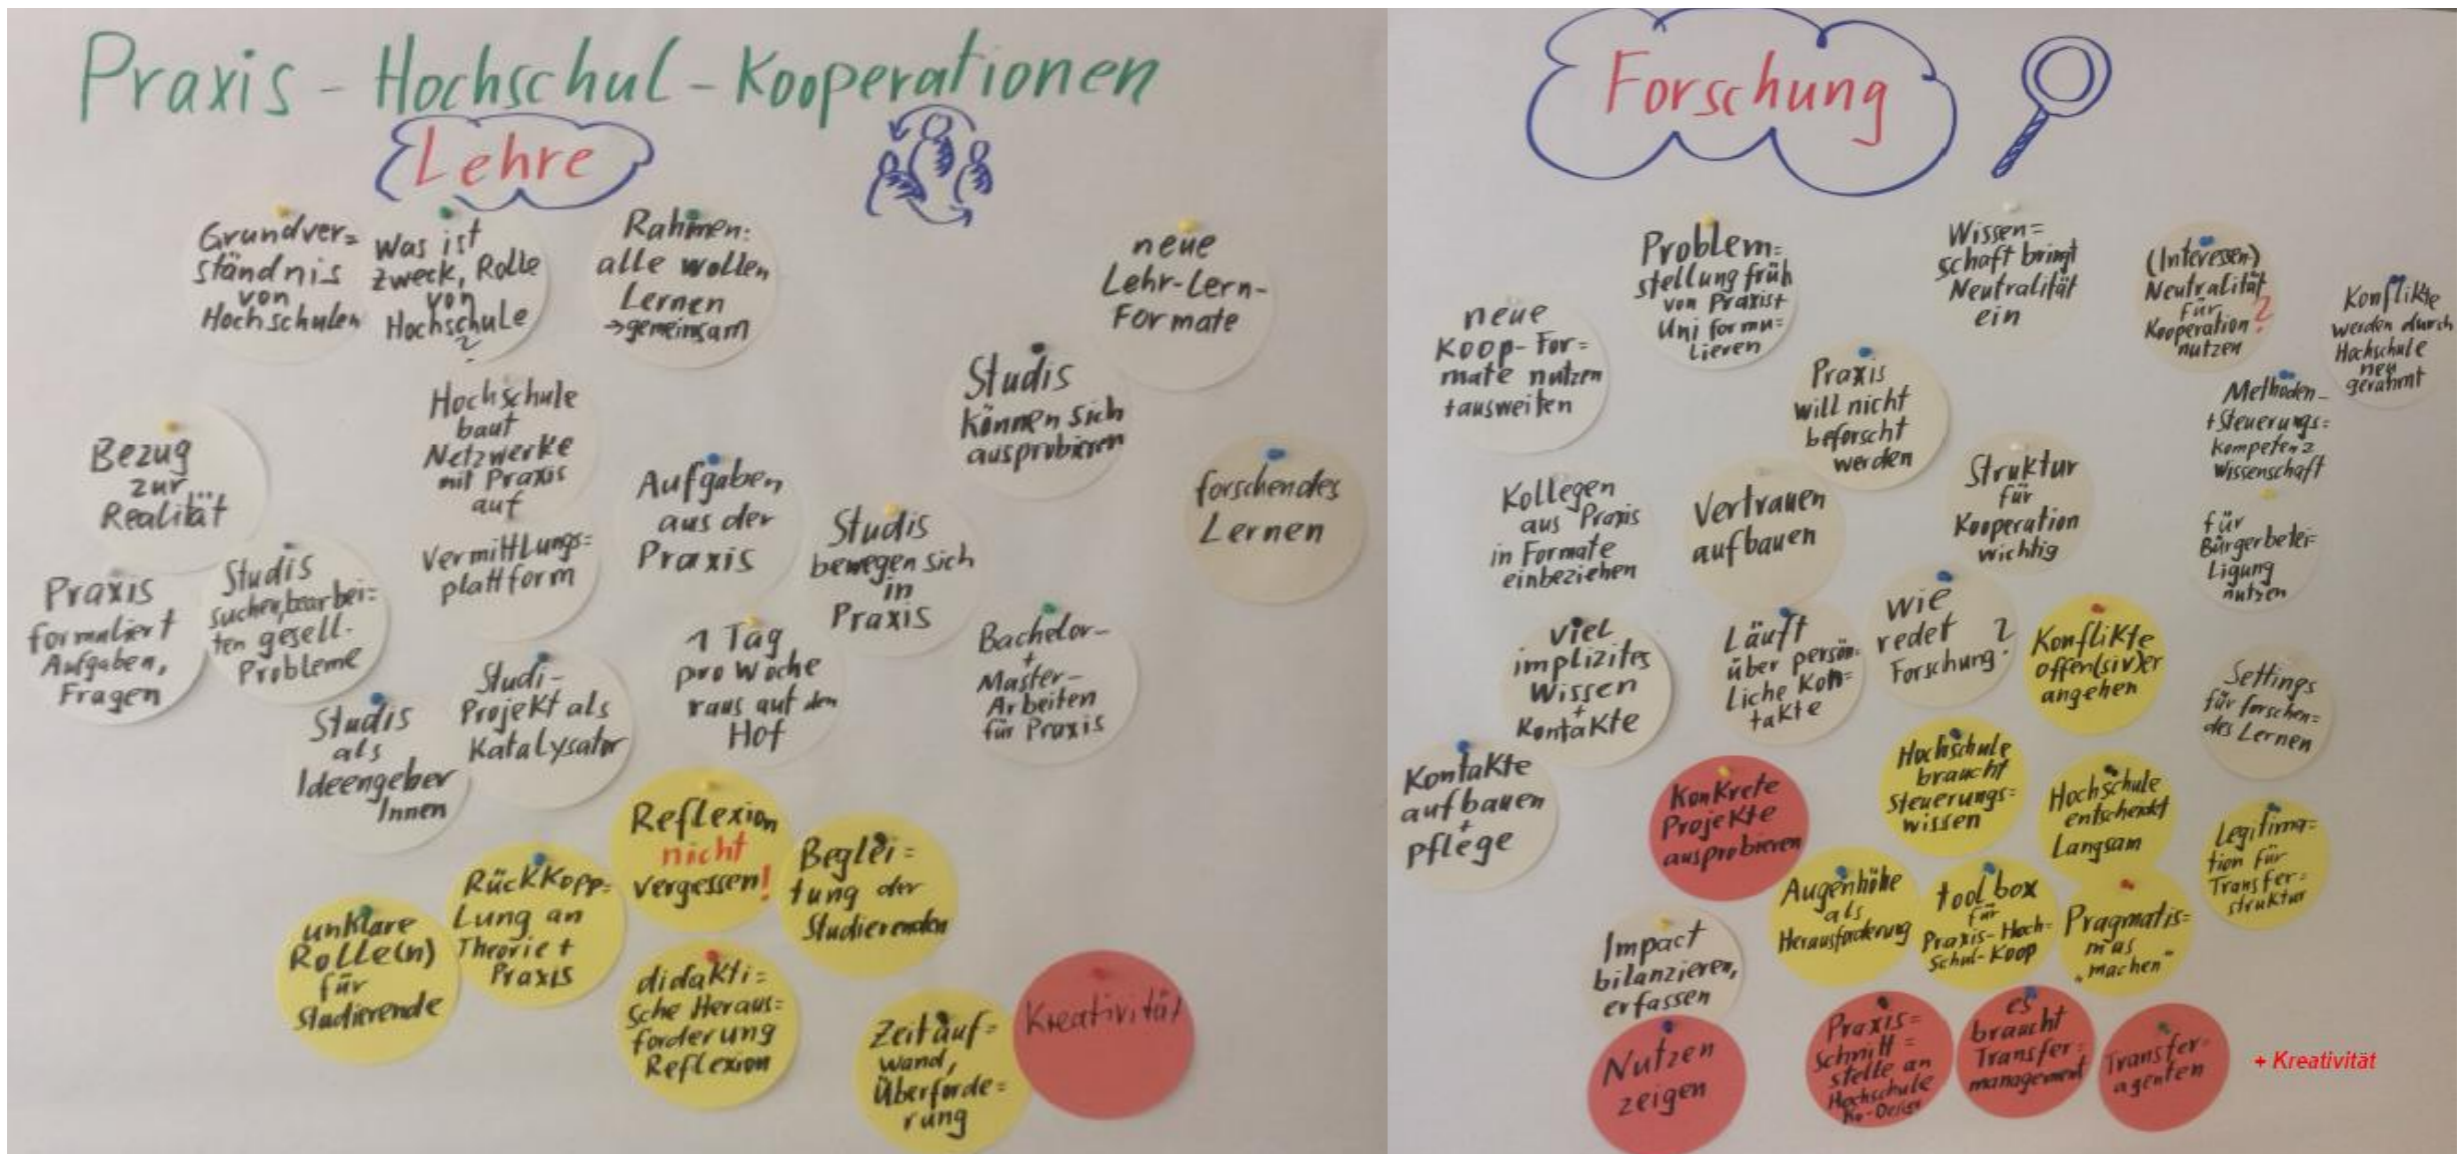 Praxis - Hochschul - Kooperationen
Lehre
Grundver=
ständnis
von
Hochschulen
Was ist
Zweck, Rolle
von
Hochschule
?
Rahmen:
alle wollen
Lernen
→gemeinsam
neue
Lehr-Lern-
Formate
Hochschule
baut
Netzwerke
mit Praxis
auf
Studis
können sich
ausprobieren
Bezug
zur
Realität
Aufgaben
aus der
Praxis
forschendes
Lernen
Vermittlungs=
plattform
Studis
bewegen sich
in
Praxis
Praxis
formuliert
Aufgaben,
Fragen
Studis
suchen, bearbei=
ten gesell.
Probleme
1 Tag
pro Woche
raus auf den
Hof
Bachelor-
+
Master-
Arbeiten
für Praxis
Studis
als
Ideengeber
Innen
Studi-
Projekt als
Katalysator
Reflexion
nicht
vergessen!
Beglei=
tung der
Studierenden
Rückkopp=
lung an
Theorie +
Praxis
unklare
Rolle(n)
für
Studierende
didakti=
sche Heraus=
forderung
Reflexion
Zeitauf=
wand,
Überforde=
rung
Kreativität
Forschung
Problem=
stellung früh
von Praxis+
Uni formu=
lieren
Wissen=
schaft bringt
Neutralität
ein
(Interessen)
Neutralität
für
Kooperation ?
nutzen
Konflikte
werden durch
Hochschule
neu
gerahmt
neue
Koop-For=
mate nutzen
+ausweiten
Praxis
will nicht
beforscht
werden
Methoden-
+Steuerungs=
kompetenz
Wissenschaft
Kollegen
aus Praxis
in Formate
einbeziehen
Vertrauen
aufbauen
Struktur
für
Kooperation
wichtig
für
Bürgerbetei-
ligung
nutzen
viel
implizites
Wissen
+
Kontakte
Läuft
über persön-
liche Kon=
takte
wie
redet
Forschung?
Konflikte
offen(siv)er
angehen
Settings
für forschen=
des Lernen
Kontakte
aufbauen
+
pflege
Konkrete
Projekte
ausprobieren
Hochschule
braucht
Steuerungs=
wissen
Hochschule
entscheidet
Langsam
Legitima=
tion für
Transfer=
struktur
Augenhöhe
als
Herausforderung
toolbox
für
Praxis-Hoch-
Schul-Koop
Pragmatis=
mus
"machen"
Impact
bilanzieren,
erfassen
Nutzen
zeigen
Praxis=
schnitt=
stelle an
Hochschule
es
braucht
Transfer=
management
Transfer-
agenten
+ Kreativität